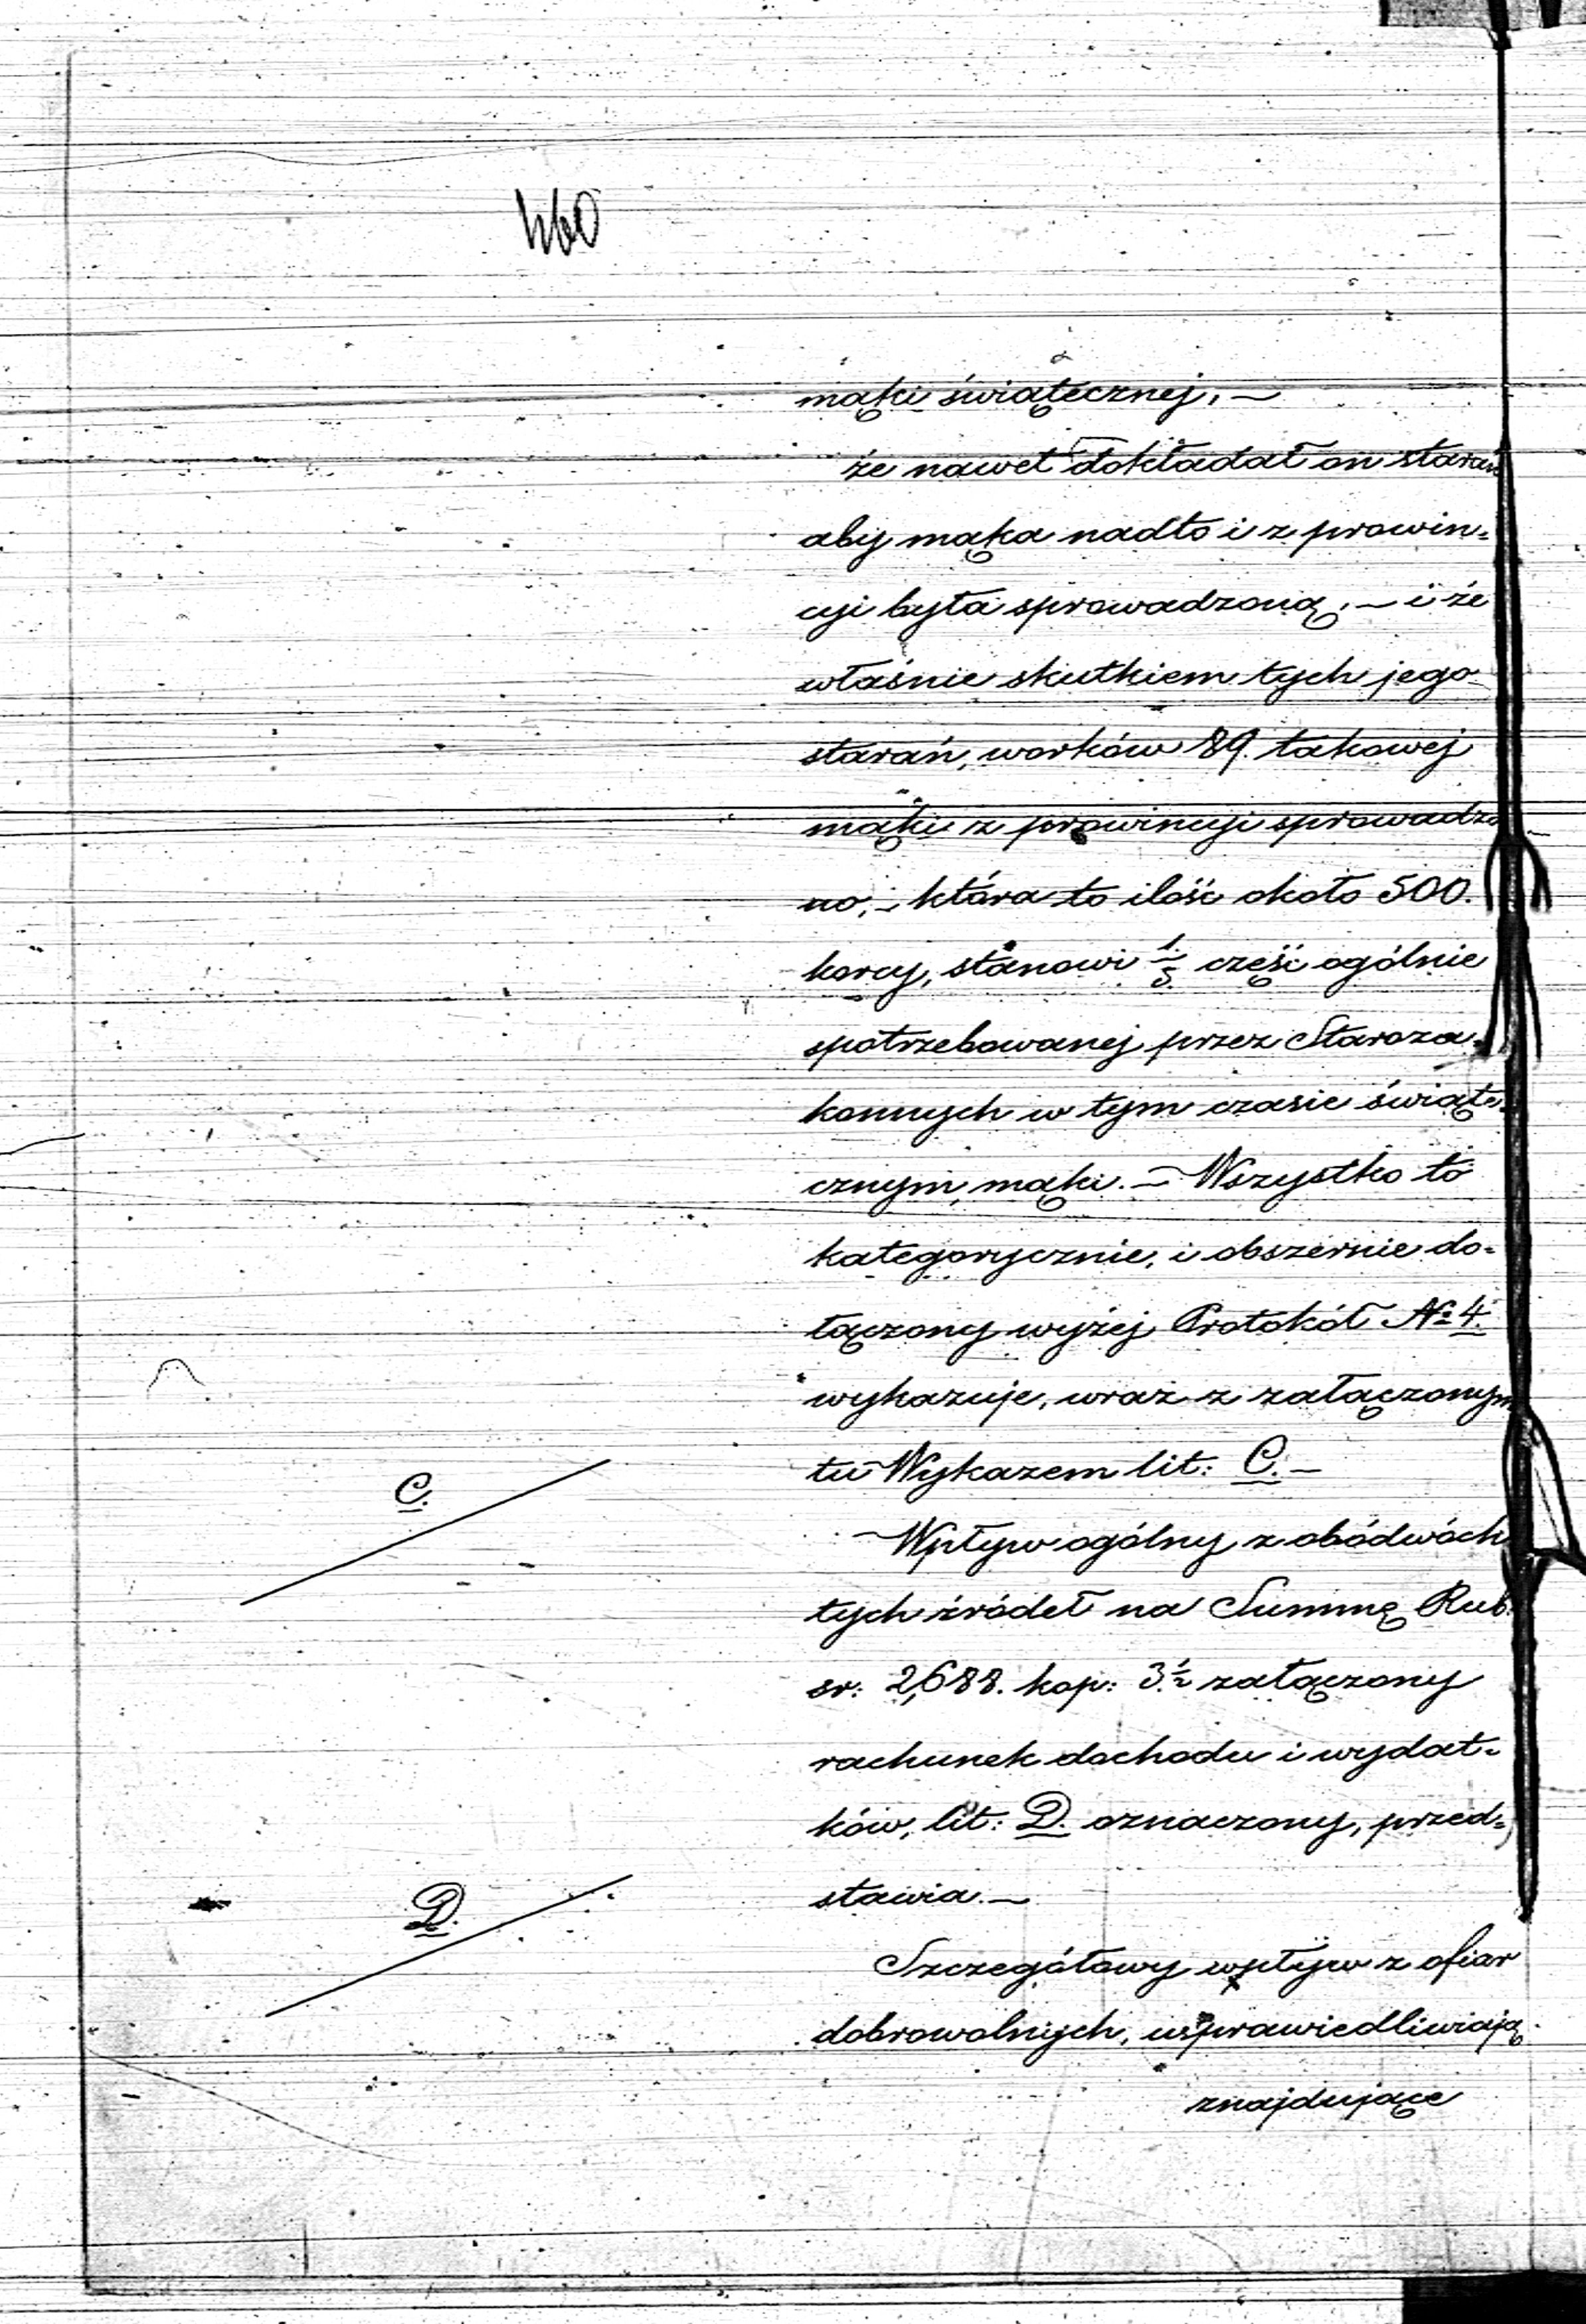 460
mąki świątecznej, —
że nawet dokładał on starań
aby mąka nadto i z prowin=
cyi była sprowadzoną, — i że
właśnie skutkiem tych jego
starań, worków 89. takowej
mąki z prowincyi sprowadzo
no, — która to ilość około 500.
korcy, stanowi 1/5. część ogólnie
spotrzebowanej przez Staroza=
konnych w tym czasie świąte=
cznym, mąki. — Wszystko to
kategorycznie, i obszernie do=
łączony wyżej Protokół № 4.
wykazuje, wraz z załączonym
tu Wykazem lit: C. —
C.
Wpływ ogólny z obódwóch
tych źródeł na Summę Rub:
sr: 2,688. kop: 3 1/2 załączony
rachunek dochodu i wydat=
ków, lit: D. oznaczony, przed=
stawia. —
D.
Szczegółowy wpływ z ofiar
dobrowolnych, usprawiedliwiają
znajdujące